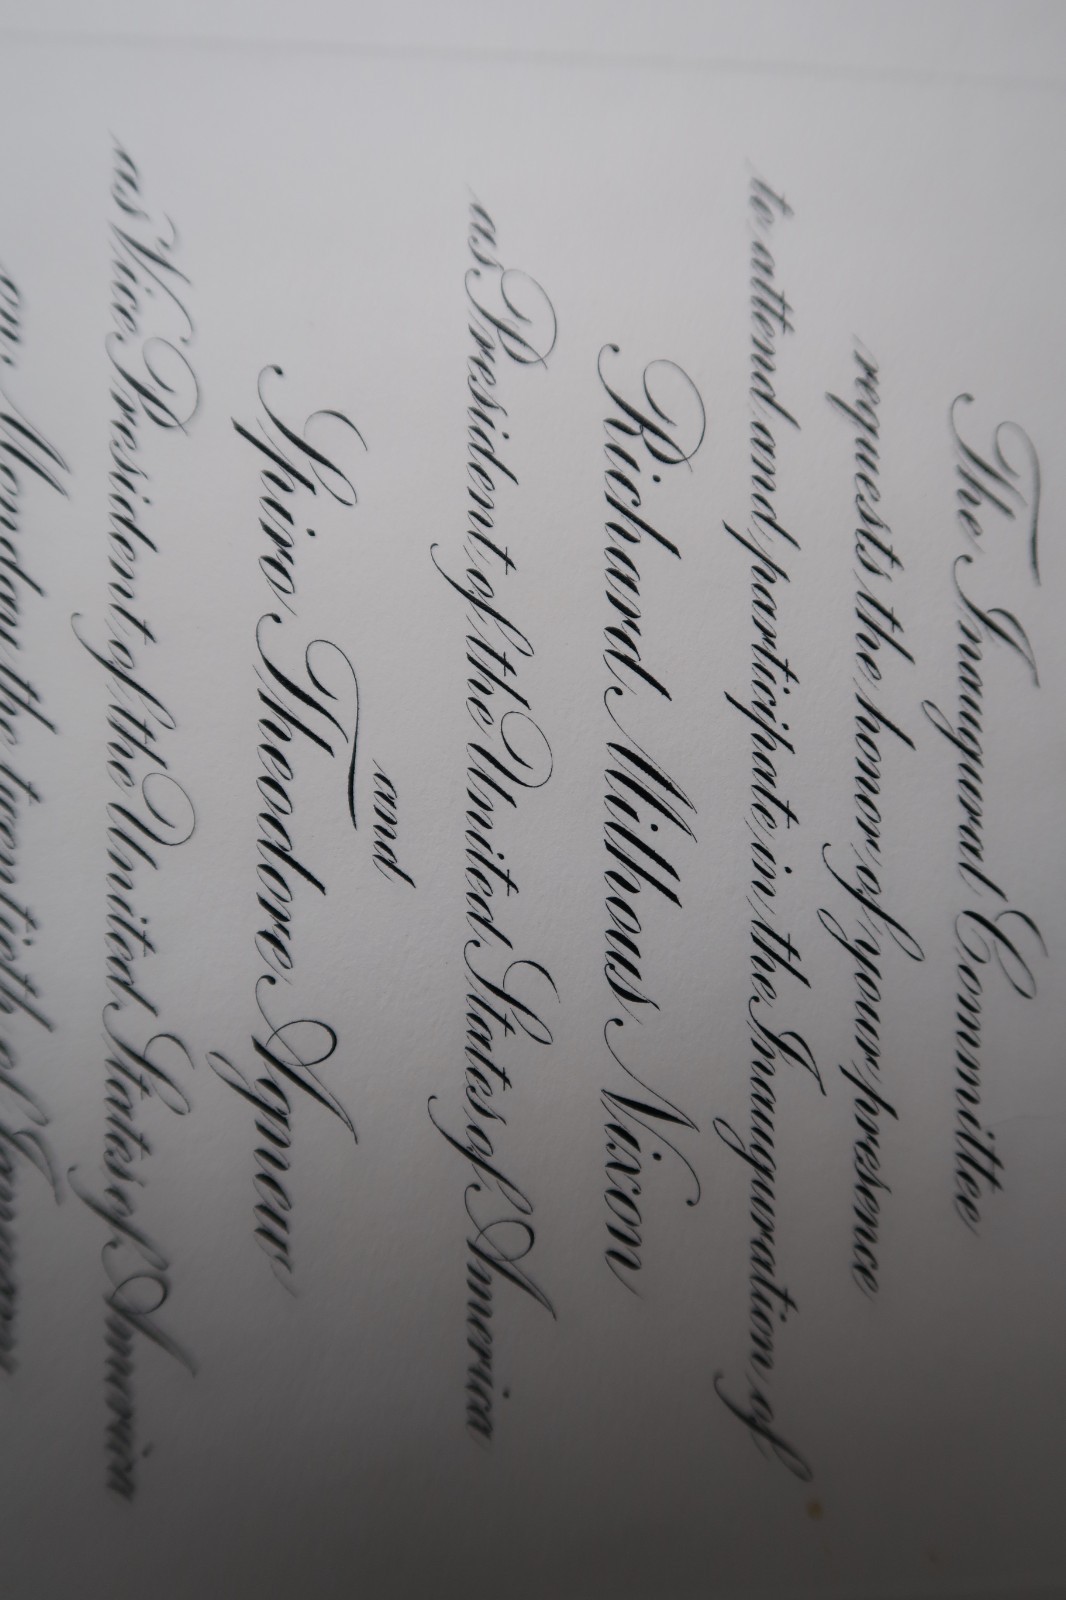 The Inaugural Committee
requests the honor of your presence
to attend and participate in the Inauguration of
Richard Milhous Nixon
as President of the United States of America
and
Spiro Theodore Agnew
as Vice President of the United States of America
on Monday the twentieth of January